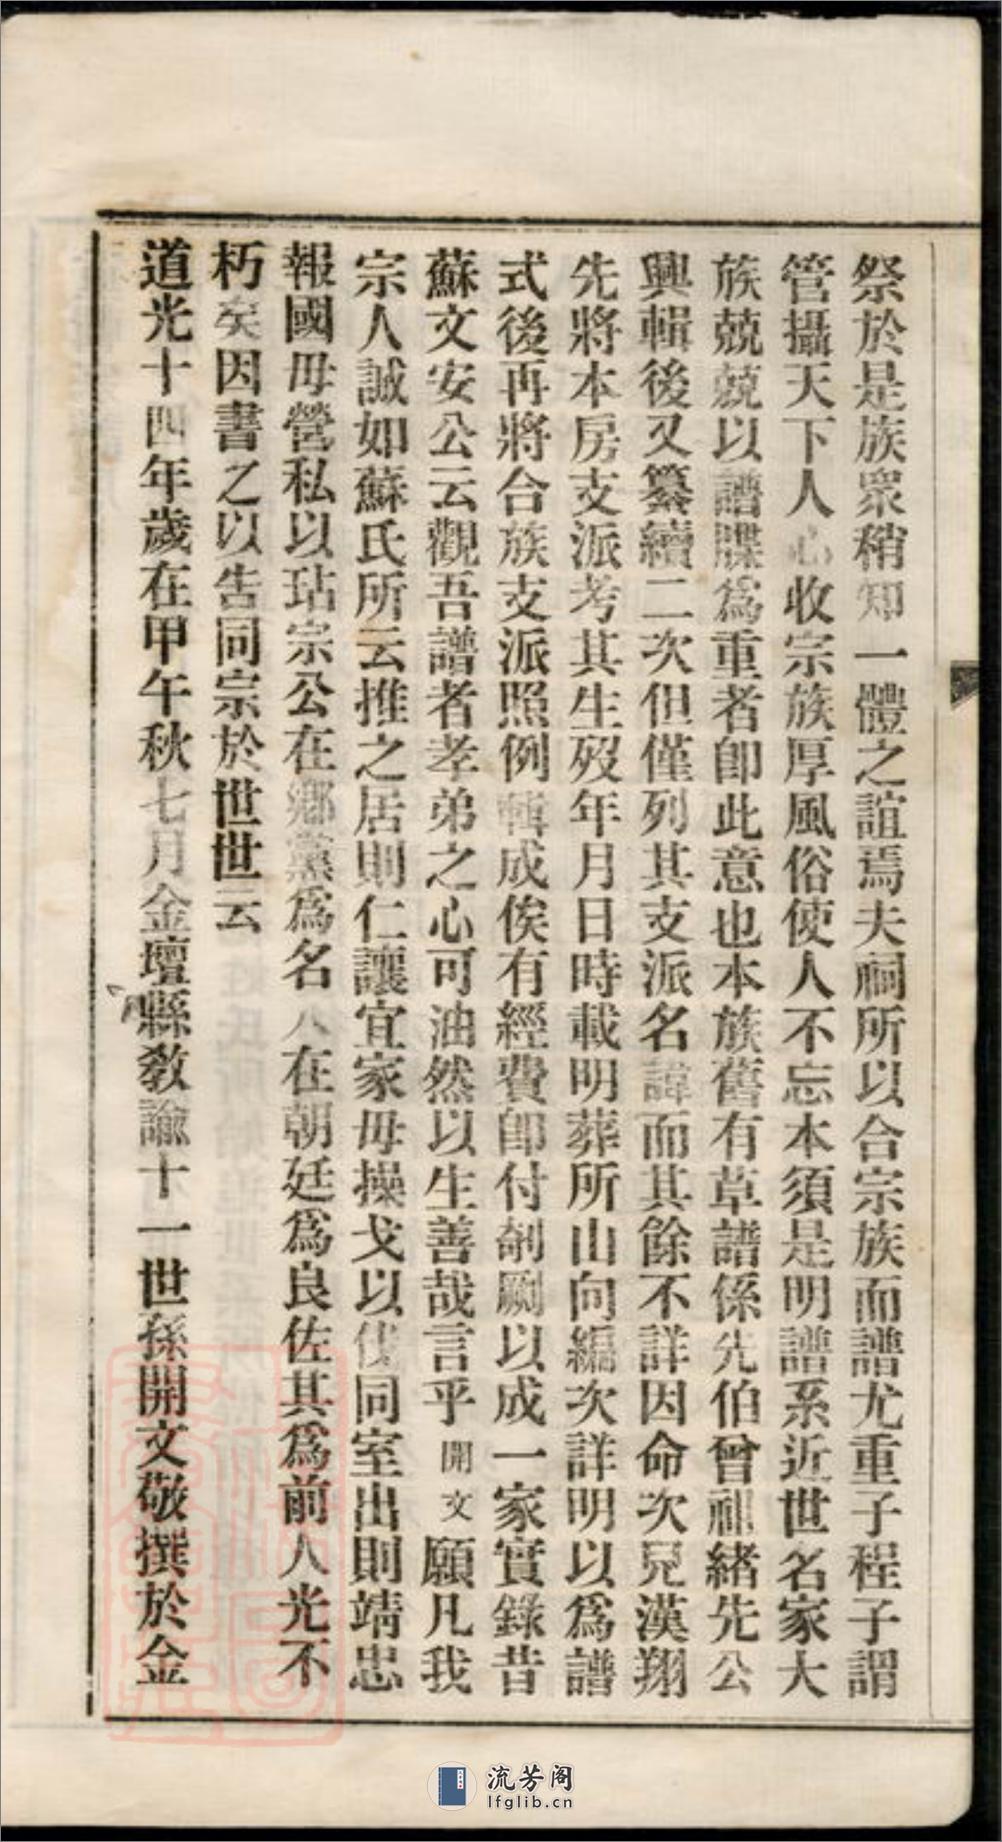 祭於是族眾稍知一體之誼焉夫祠所以合宗族而譜尤重子程子謂
管攝天下人心收宗族厚風俗使人不忘本須是明譜系近世名家大
族兢兢以譜牒為重者卽此意也本族舊有草譜係先伯曾祖緒先公
興輯後又纂續二次但僅列其支派名諱而其餘不詳因命次兄漢翔
先將本房支派考其生歿年月日時載明葬所山向編次詳明以為譜
式後再將合族支派照例輯成俟有經費卽付剞劂以成一家實錄昔
蘇文安公云觀吾譜者孝弟之心可油然以生善哉言乎開文願凡我
宗人誠如蘇氏所云推之居則仁讓宜家毋操戈以伐同室出則靖忠
報國毋營私以玷宗公在鄉黨為名人在朝廷為良佐其為前人光不
朽矣因書之以告同宗於世世云
道光十四年歲在甲午秋七月金壇縣教諭十一世孫開文敬撰於金
流芳阁
lfglib.cn